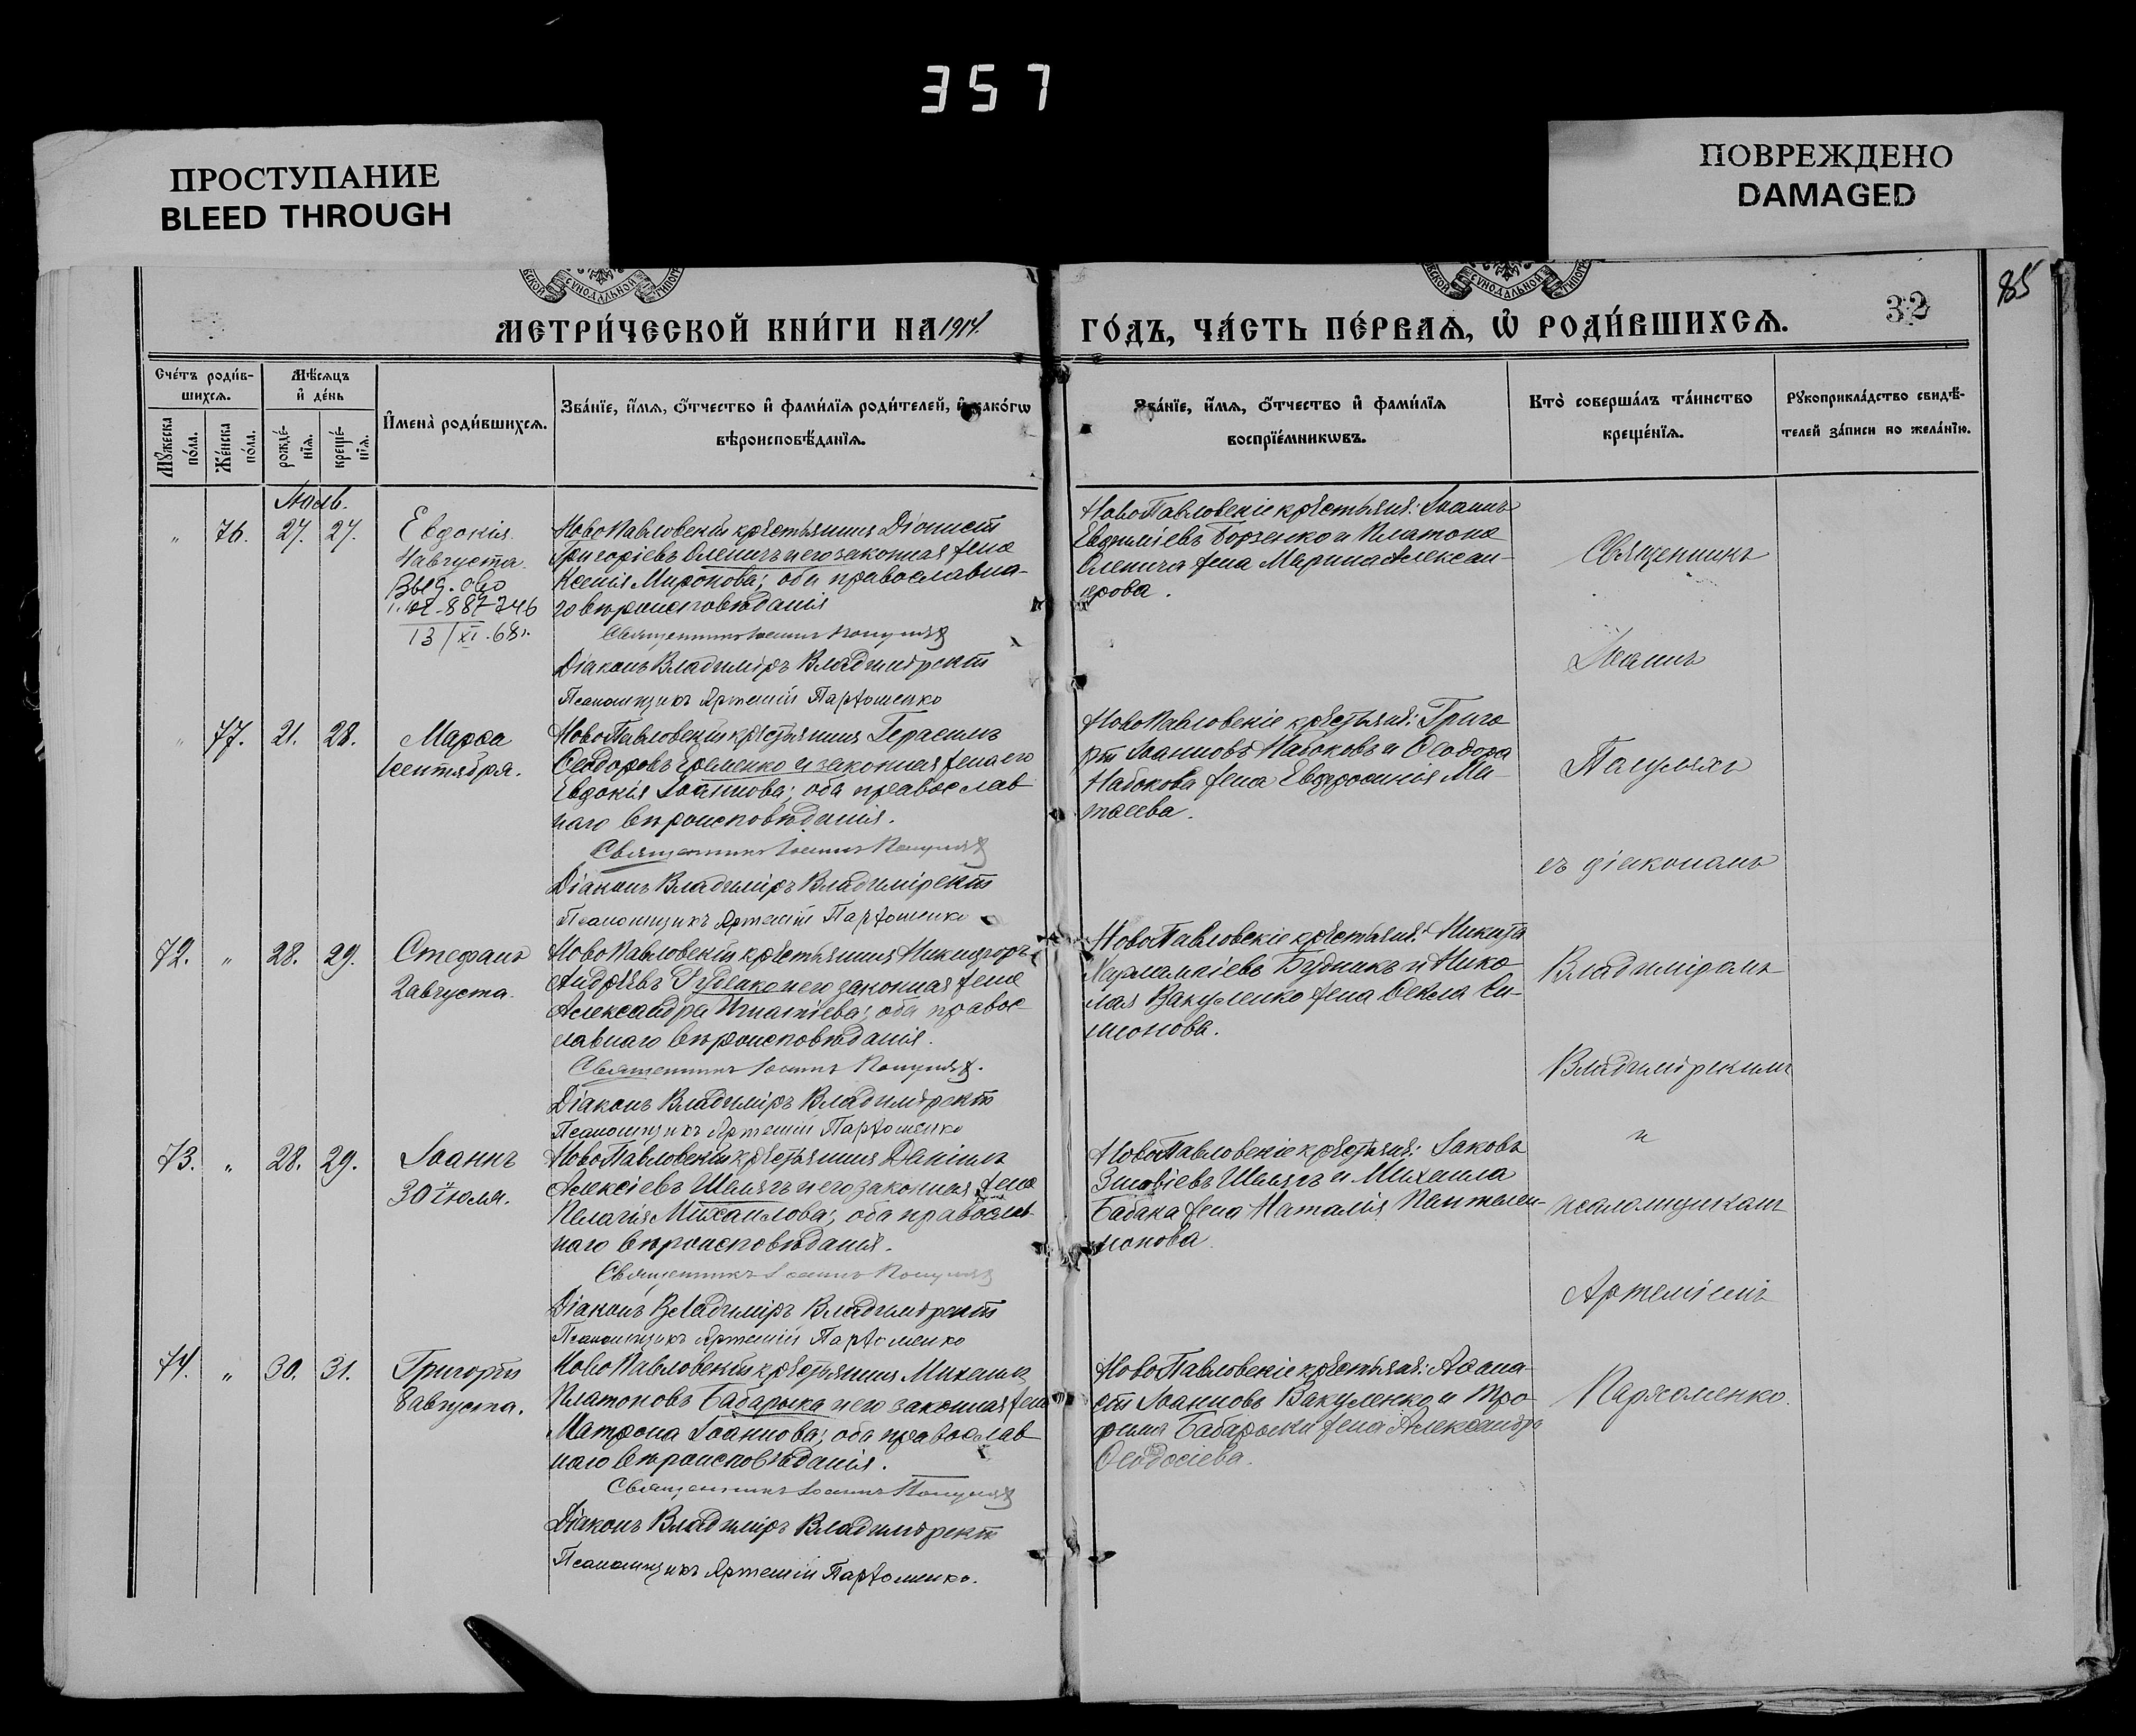 357
ПРОСТУПАНИЕ
BLEED THROUGH
ПОВРЕЖДЕНО
DAMAGED
МЕТРИ́ЧЕСКОЙ КНИ́ГИ НА 1914.
ГО́ДЪ, ЧА́СТЬ ПЕ́РВАѦ, Ѽ РОДИ́ВШИХСѦ.
32
85
Сче́тъ роди́в-
шихсѧ.
Мѣ́сѧцъ
и҆ де́нь
Мꙋ́жеска
по́ла.
Же́нска
по́ла.
рожде́-
нїѧ.
креще́-
нїѧ.
И҆мена̀ роди́вшихсѧ.
Зва́нїе, и҆́мѧ, ѻ҆́тчество и҆ фами́лїѧ роди́телей, и҆ како́гѡ
вѣроисповѣ́данїѧ.
Зва́нїе, и҆́мѧ, ѻ҆́тчество и҆ фами́лїѧ
воспрїе́мникѡвъ.
Кто̀ соверша́лъ та́инство
креще́нїѧ.
Рꙋкоприкла́дство свидѣ́-
телей за́писи по жела́нїю.
Іюль.
" 76. 27. 27. Евдокія
4 августа.
887746
13/XI.68г.
НовоПавловскій крестьянинъ Діонисій
Григоріевъ Оленичъ и его законная жена
Ксенія Миронова; оба православна-
го вѣроисповѣданія
Священникъ Іоаннъ
Діаконъ Владиміръ Владимірскій
Псаломщикъ Артемій Пархоменко
НовоПавловскіе крестьяне: Іоаннъ
Евфиміевъ Борзенко и Платона
Оленича жена Марина Алексан-
дрова.
" 77. 21. 28. Марѳа
1 сентября.
НовоПавловскій крестьянинъ Герасимъ
Ѳеодоровъ Еременко и законная жена его
Евдокія Іоаннова; оба православ
наго вѣроисповѣданія.
Священникъ Іоаннъ
Діаконъ Владиміръ Владимірскій
Псаломщикъ Артемій Пархоменко
НовоПавловскіе крестьяне: Григо
рій Іоанновъ Набоковъ и Ѳеодора
Набокова жена Евфросинія Ма-
тѳеева.
72. " 28. 29. Стефанъ
2 августа.
НовоПавловскій крестьянинъ Никифоръ
Андреевъ Рудьяко и его законная жена
Александра Игнатіева; оба правос
лавнаго вѣроисповѣданія.
Священникъ Іоаннъ
Діаконъ Владиміръ Владимірскій
Псаломщикъ Артемій Пархоменко
НовоПавловскіе крестьяне: Никита
Харлампіевъ Будникъ и Нико-
лая Вакуленко жена Ѳекла Си-
монова.
73. " 28. 29. Іоаннъ
30 іюля.
НовоПавловскій крестьянинъ Даніилъ
Алексіевъ Шелягъ и его законная жена
Пелагія Михаилова; оба православ-
наго вѣроисповѣданія.
Священникъ Іоаннъ
Діаконъ Владиміръ Владимірскій
Псаломщикъ Артемій Пархоменко
НовоПавловскіе крестьяне: Іаковъ
Зиновіевъ Шелягъ и Михаила
Бабака жена Наталія Пантелеи-
монова.
74. " 30. 31. Григорій
8 августа.
НовоПавловскій крестьянинъ Михаилъ
Платоновъ Бабарыка и его законная жена
Матрона Іоаннова; оба православ
наго вѣроисповѣданія.
Священникъ Іоаннъ
Діаконъ Владиміръ Владимірскій
Псаломщикъ Артемій Пархоменко.
НовоПавловскіе крестьяне: Аѳана-
сій Іоанновъ Вакуленко и Тро-
фима Бабарыки жена Александра
Ѳеодосіева.
Священникъ
Іоаннъ
съ діакономъ
Владиміромъ
Владимірскимъ
и
псаломщикомъ
Артеміемъ
Пархоменко.